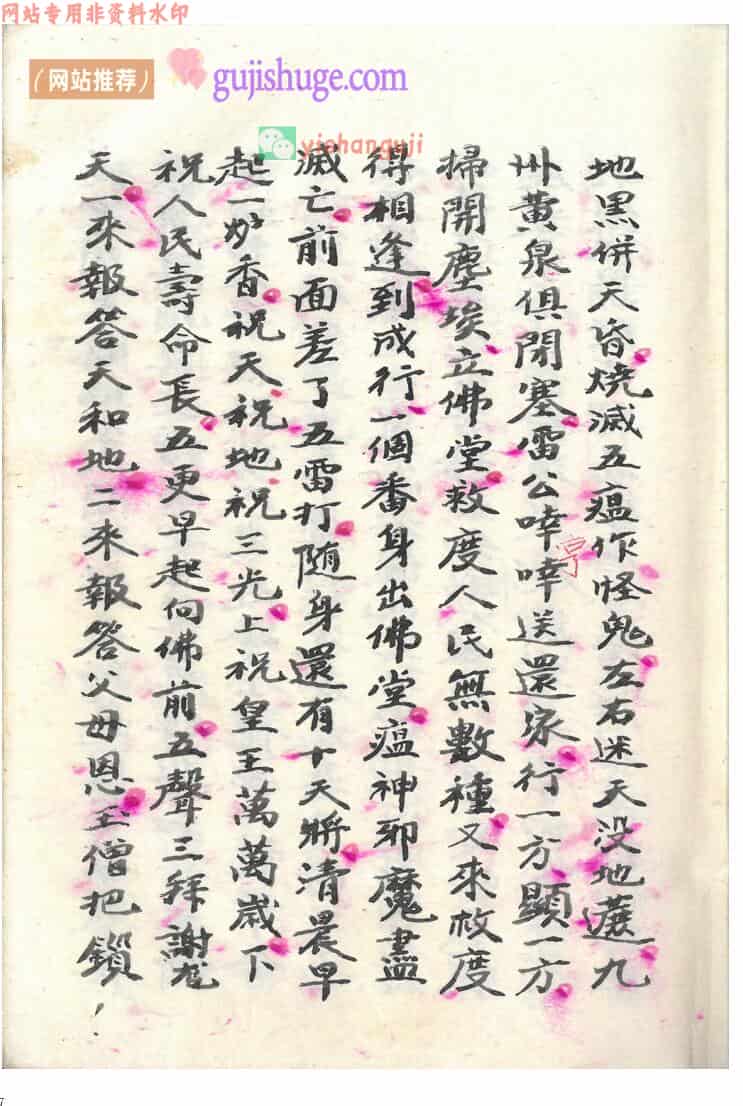 网站专用非资料水印
（网站推荐） gujishuge.com
yishanguji
地黒併天昏燒滅五瘟作怪鬼左右迷天没地遮九
州黄泉俱閉塞雷公啈啈送還家行一方顯一方
亨
掃開塵埃立佛堂救度人民無數種又來救度
得相逢到成行一個番身出佛堂瘟神邪魔盡
滅亡前面差了五雷打随身還有十天將清晨早
起一炉香祝天祝地祝三光上祝皇王萬萬歲下
祝人民壽命長五更早起向佛前五聲三拜謝龙
天一來報答天和地二來報答父母恩玉僧把鎖
7